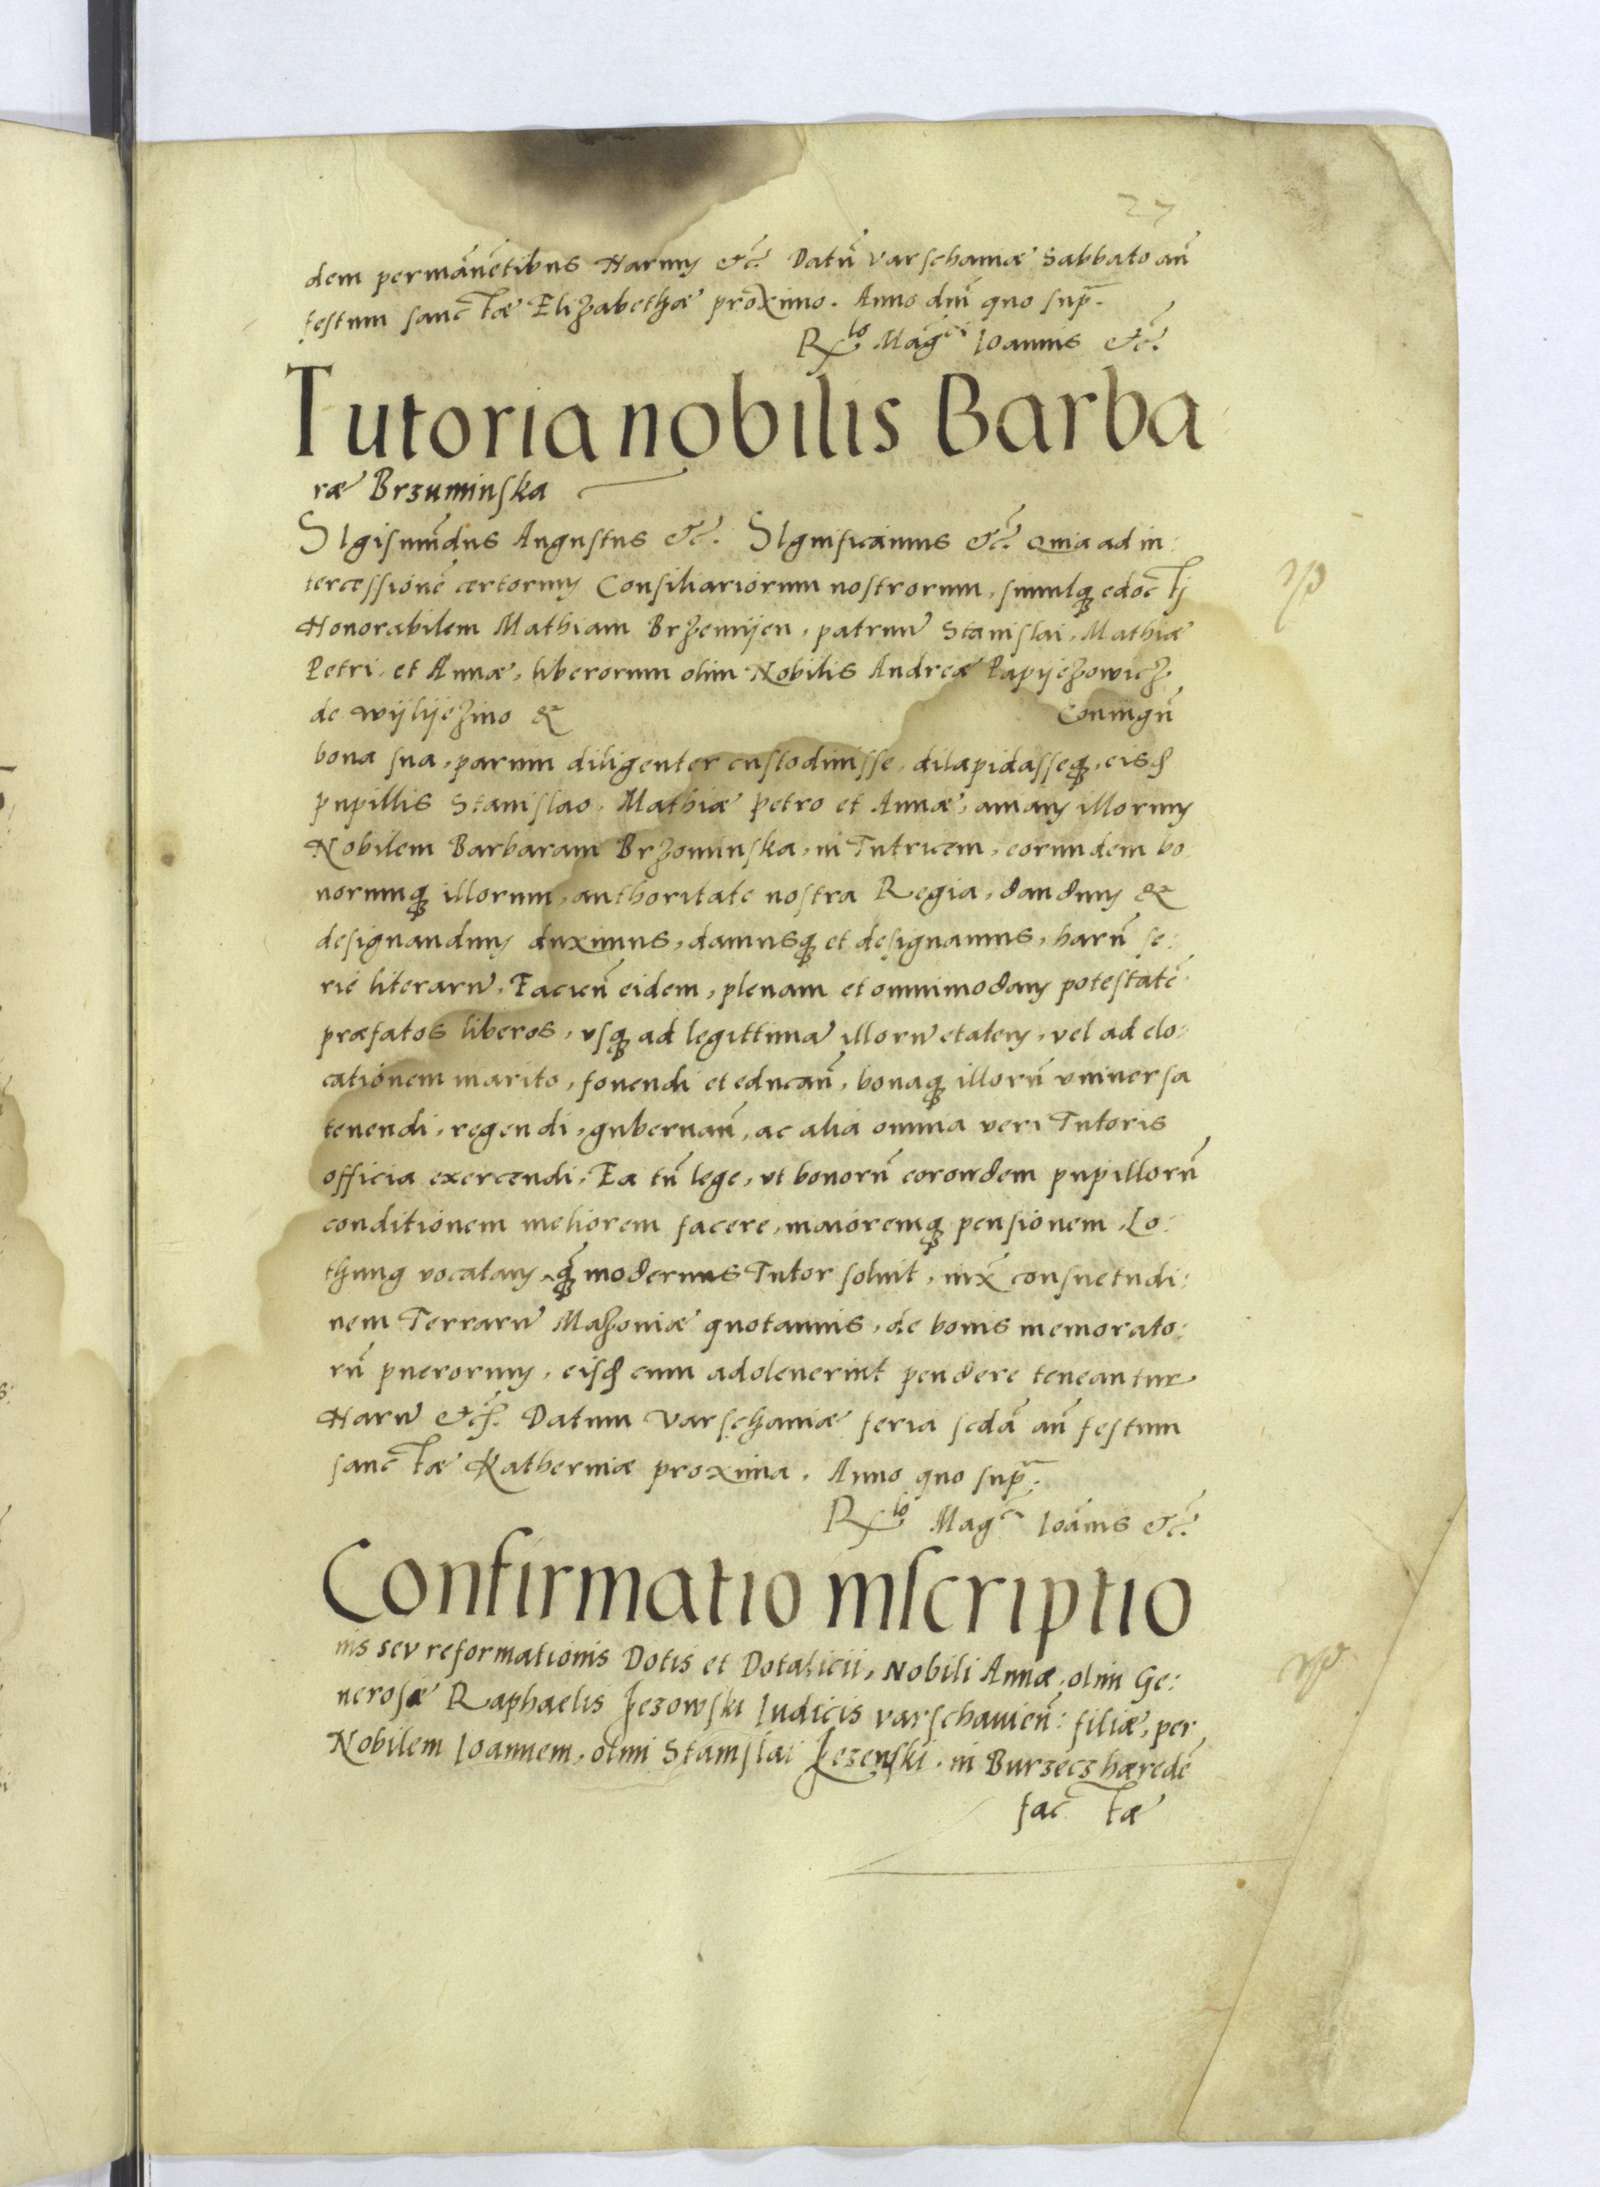 27
dem permānētibus Harum etc̄. Datū Varschauiæ Sabbato an̄
festum sanctæ Elizabethæ proximo. Anno dn̄i quo supr̄.
Rlo Magci Ioannis etc̄.
Tutoria nobilis Barba
ræ Brzuminska
SIgismūdus Augustus etc̄. SIgnificamus etc̄. Quia ad in:
tercessionē certorum Consiliariorum nostrorum, simulq̄ edocti
Honorabilem Mathiam Brzemijen, patruū Stanislai, Mathiæ
Petri, et Annæ, liberorum olim Nobilis Andreæ Papijezowicz
de Wijlijezino & Coniugū
bona sua, parum diligenter custodiuisse, dilapidasseq̄, eisd̄
pupillis Stanislao, Mathiæ Petro et Annæ, amam illorum
Nobilem Barbaram Brzominska, in Tutricem, eorundem bo
norumq̄ illorum, authoritate nostra Regia, dandum &
designandum duximus, damusq̄ et designamus, harū se:
rie literarū. Facien̄ eidem, plenam et omnimodam potestatē
præfatos liberos, vsq̄ ad legittimā illorū etatem, vel ad elo:
cationem marito, fouendi et educan̄, bonaq̄ illorū vniuersa
tenendi, regendi, gubernan̄, ac alia omnia veri Tutoris
officia exercendi. Ea tn̄ lege, vt bonorū eorondem pupillorū
conditionem meliorem facere, maioremq̄ pensionem, Lo:
thung vocatam, q̄ modernus Tutor soluit, iux̄ consuetudi:
nem Terrarū Mazouiæ quotannis, de bonis memorato:
rū puerorum, eisd̄ cum adoleuerint pendere teneantur
Harū etc̄. Datum Varschauiæ feria scdā an̄ festum
sanctæ Katherinæ proxima. Anno quo supr̄.
Rlo Magci Ioānis etc̄.
Confirmatio inscriptio
nis seu reformationis Dotis et Dotalicii, Nobili Annæ, olim Ge:
nerosæ Raphaelis Jezowski Iudicis varschauien̄: filiæ, per
Nobilem Ioannem, olim Stanislai Jezenski, in Burzecz hæredē
factæ